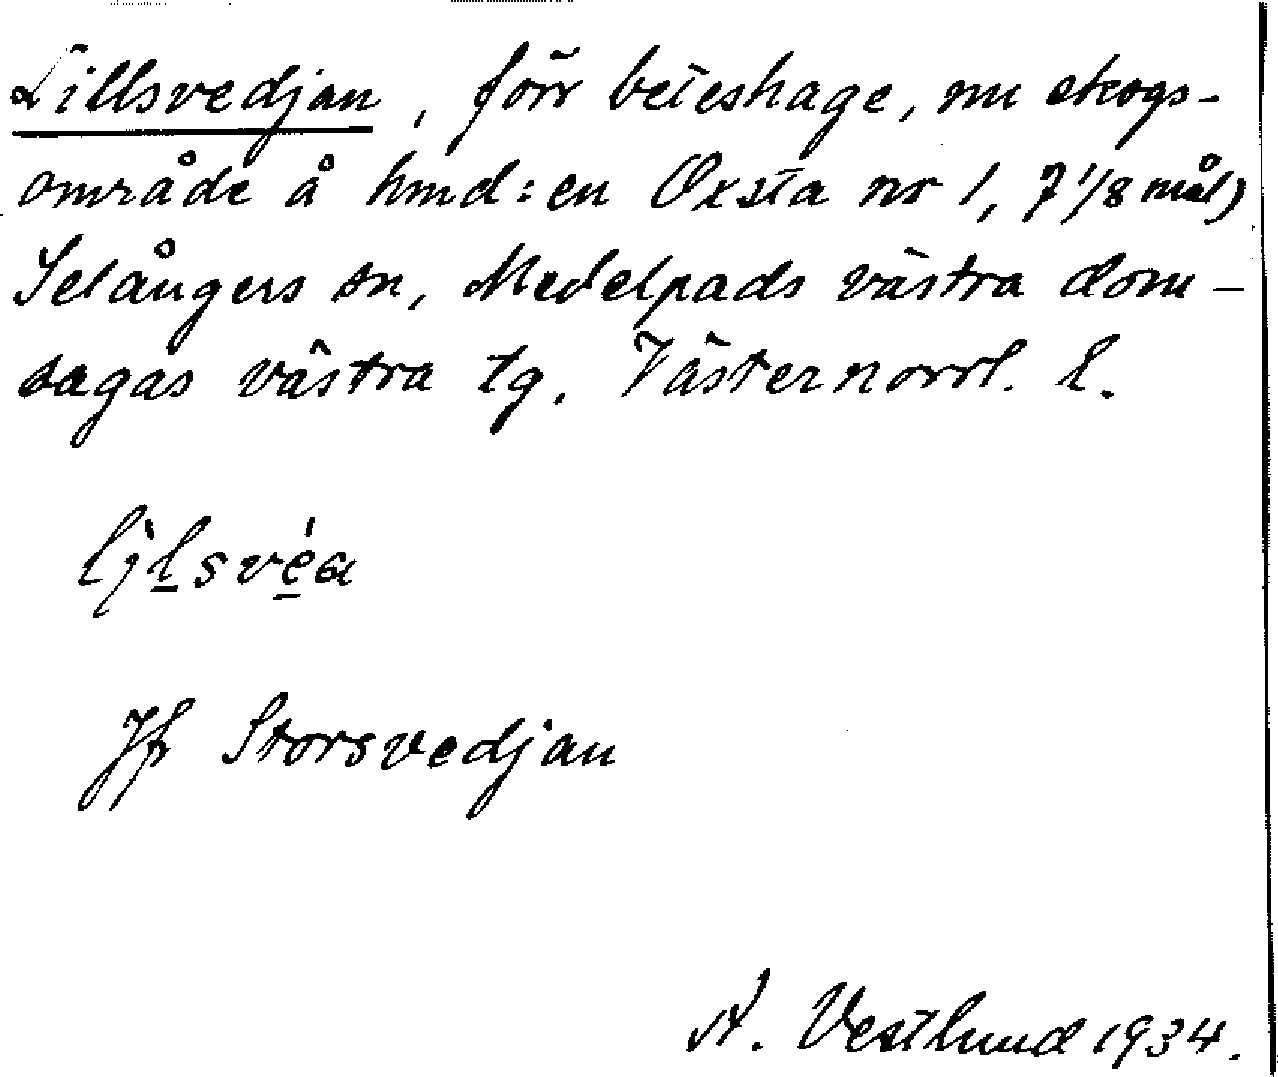 Lillsvedjan, förr beteshage, nu skogs-
område å hmd:en Oxsta nr 1, 7 1/8 mål)
Selångers sn, Medelpads västra dom-
sagas västra tg. Västernorrl. l.
Jfr Storsvedjan
A. Vestlund 1934.